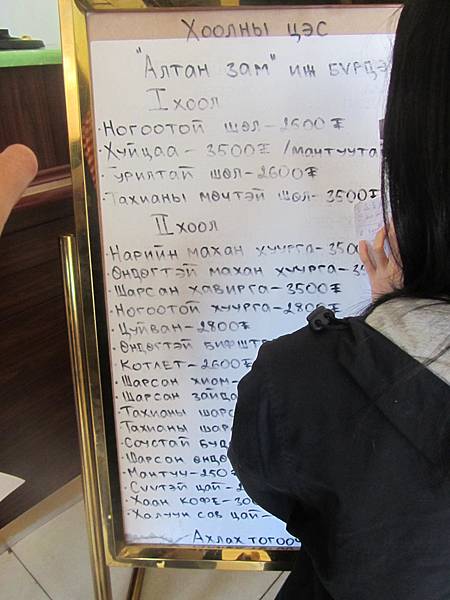 Хоолны цэс
"Алтан зам" иж бүрцэ
I хоол
· Ногоотой шөл - 2600₮
· Хуйцаа - 3500₮ /мантуута
· Гурилтай шөл - 2600₮
· Тахианы мөчтэй шөл - 3500₮
II хоол
· Нарийн махан хуурга - 3500
· Өндөгтэй махан хуурга - 3
· Шарсан хавирга - 3500₮
· Ногоотой хуурга - 2800₮
· Цуйван - 2800₮
· Өндөгтэй бифшт
· Котлет - 2600₮
· Шарсан хиам -
· Шарсан зайда
· Тахианы шарс
· Тахианы шар
· Соустай буд
· Шарсан өндө
· Мантуу - 250
· Сүүтэй цай -
· Хаан кофе - 30
· Халуун сав цай -
Ахлах тогооч